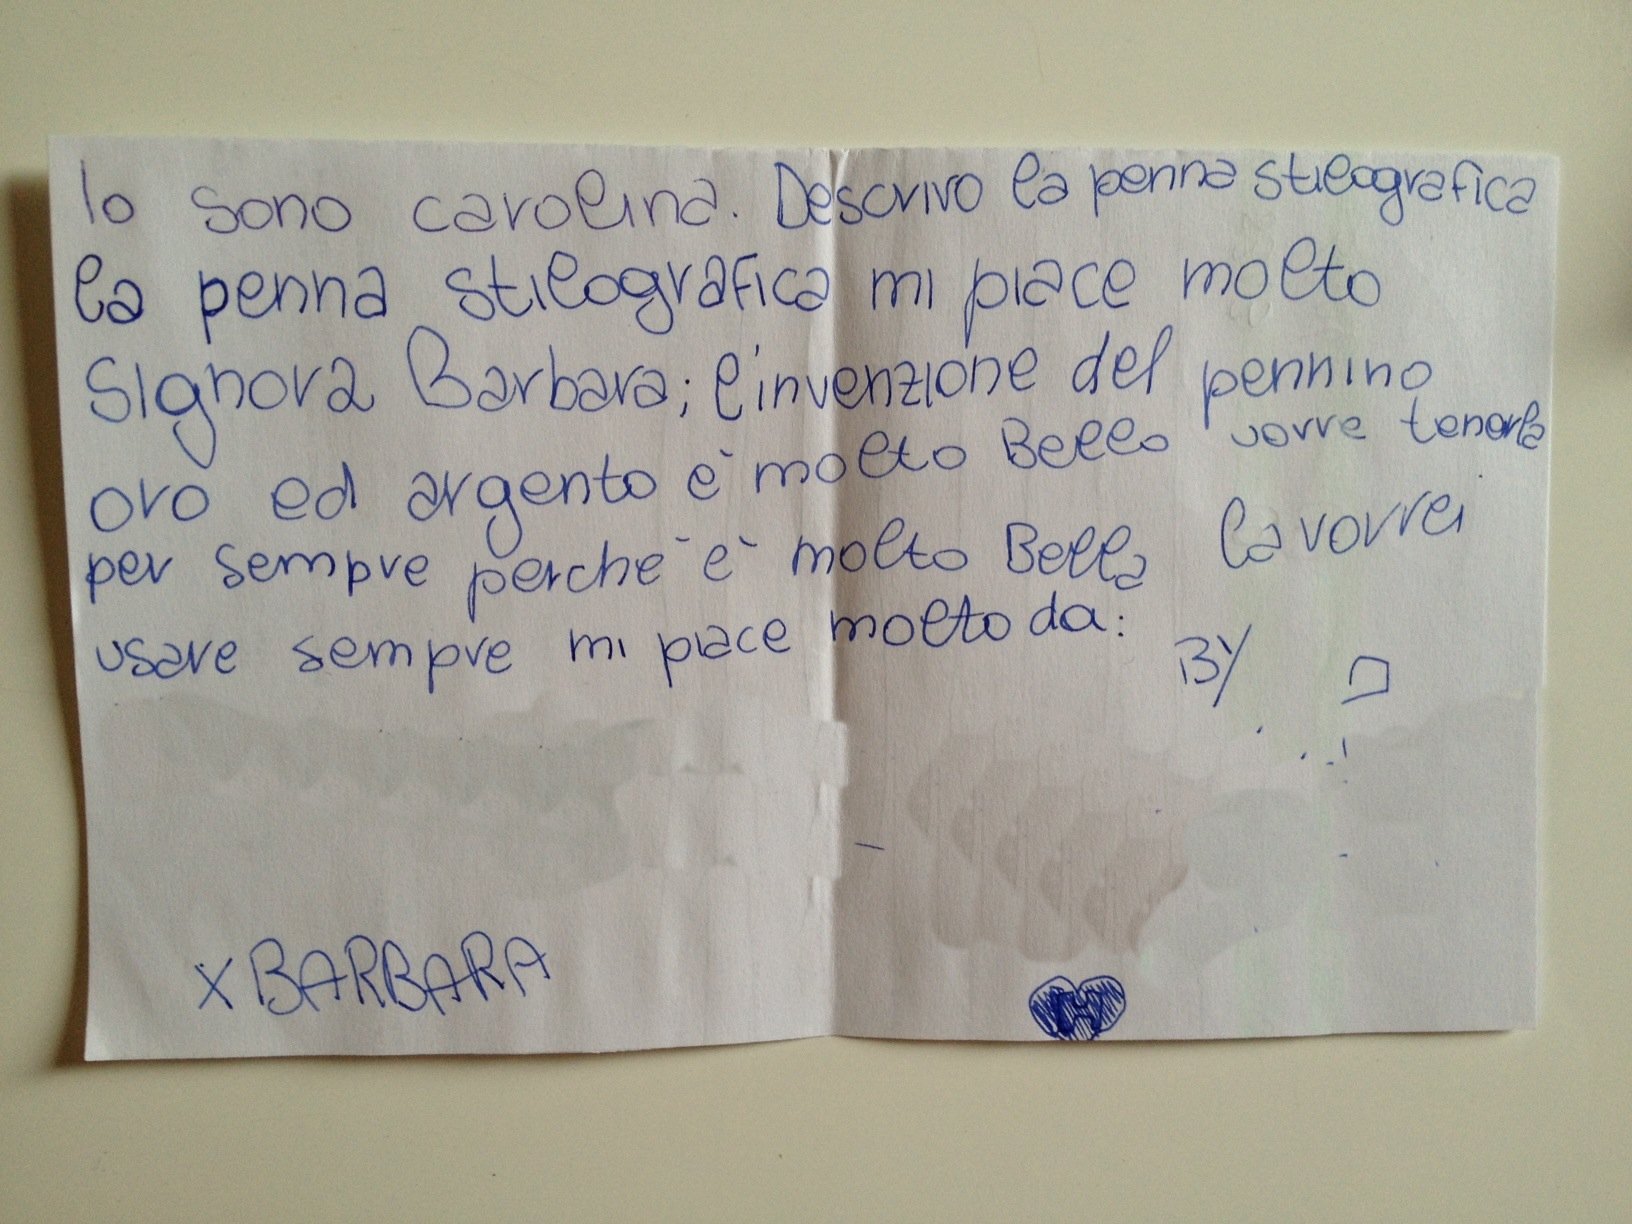 Io sono carolina. Descrivo la penna stilografica
la penna stilografica mi piace molto
Signora Barbara; l'invenzione del pennino
oro ed argento è molto Bello vorre tenerla
per sempre perchè è molto Bella la vorrei
usare sempre mi piace molto da:
BY
X BARBARA